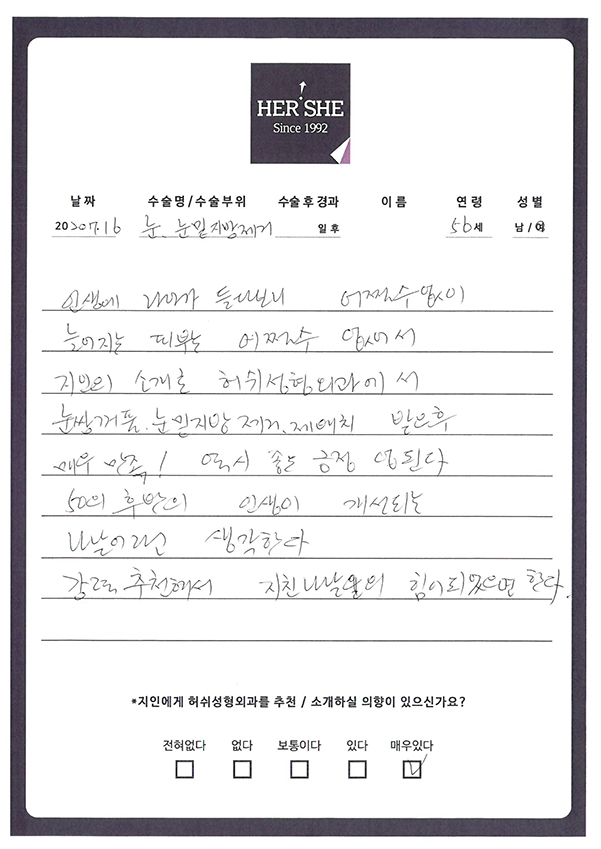 HER SHE
Since 1992
날짜 수술명/수술부위 수술후경과 이름 연령 성별
2020.7.16 눈. 눈밑지방제거 일후 56세 남/여
인생에 나이가 들다보니 어쩔수없이
늘어지는 피부는 어쩔수 없어서
지인의 소개로 허쉬성형외과에서
눈쌍꺼풀.눈밑지방제거.재배치 받은후
매우 만족! 역시 좋는 긍정 된다
50의 후반의 인생이 개선되는
나날이라 생각한다
강력 추천해서 지친나날의 힘이되었으면 한다.
*지인에게 허쉬성형외과를 추천 / 소개하실 의향이 있으신가요?
전혀없다 없다 보통이다 있다 매우있다